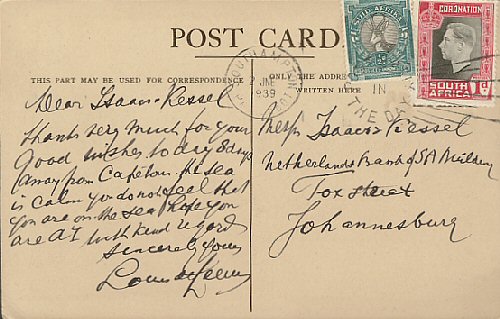 POST CARD
THIS PART MAY BE USED FOR CORRESPONDENCE
ONLY THE ADDRESS
WRITTEN HERE
Dear Isaacs & Kessel
Thanks very much for your
good wishes today 8 days
away from Capetown the sea
is calm you do not feel that
you are on the sea Hope you
are A1 with kind regards
Sincerely yours
Louis
Messrs Isaacs & Kessel
Netherlands Bank of SA Building
Fox Street
Johannesburg
S.E. AFRICA
CORONATION
SOUTH AFRICA
1d
JNE
1939
IN
THE